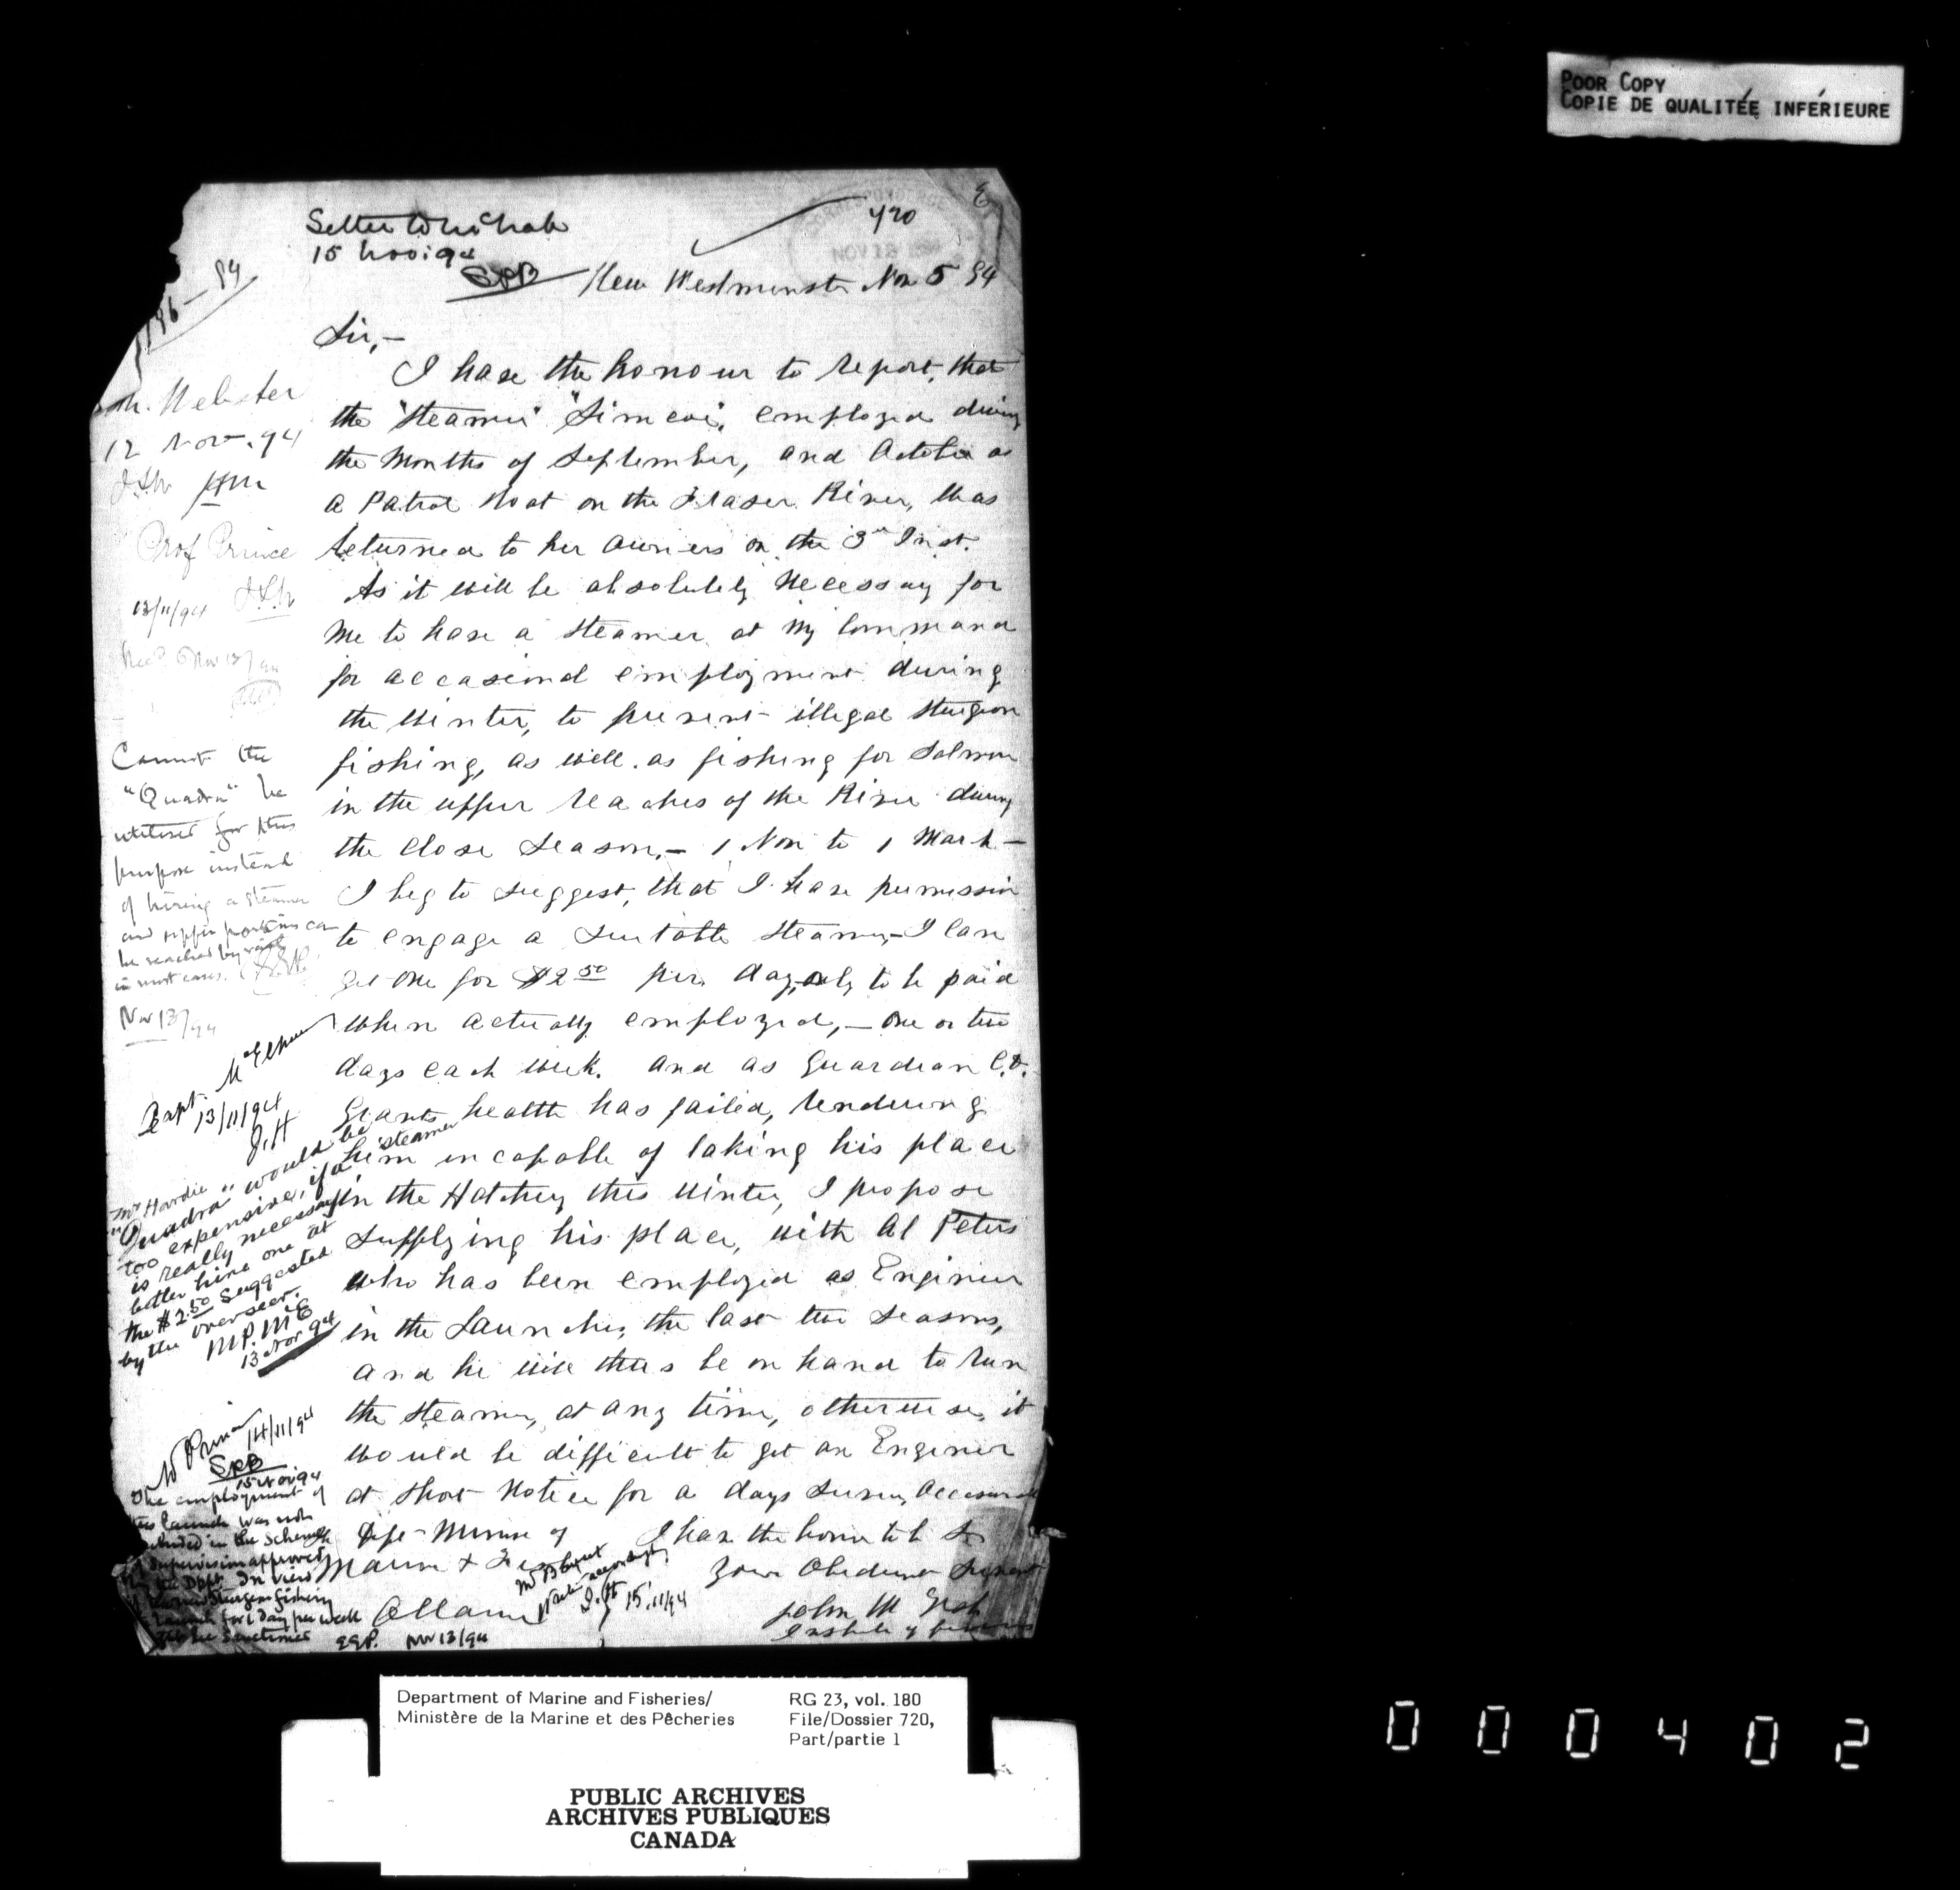 POOR COPY
COPIE DE QUALITÉE INFÉRIEURE
720
15 Nov: 94
SPB
New Westminster Nov 5 94
Sir,-
I have the honour to report, that
the "Steamer" "Simcoe", employed during
the Months of September, and October as
a Patrol Boat on the Fraser River, was
returned to her owners on the 3rd Inst.
As it will be absolutely Necessary for
Me to have a Steamer at My Command
for occasional employment during
the Winter, to prevent illegal Sturgeon
fishing, as well as fishing for Salmon
in the upper reaches of the River during
the Close Season,- 1 Nov to 1 March-
I beg to suggest, that I have permission
to engage a Suitable Steamer,-I can
get one for $2 50 per day, only to be paid
when actually employed,- One or two
days each week. And as Guardian C.D.
Grants health has failed, rendering
him incapable of taking his place
in the Hatchery this Winter, I propose
supplying his place, with Al Peters
who has been employed as Engineer
in the Launches, the last two Seasons,
and he will thus be on hand to run
the Steamer, at any time, otherwise, it
would be difficult to get an Engineer
at short Notice for a days
I have the honor to be Sir
Your Obedient Servant
John M
Dept - Minister of
Marine + Fisheries
Ottawa
Webster
12 Nov. 94
Prof Prince
13/11/94
Cannot the
"Quadra" be
utilised for this
purpose instead
of hiring a steamer
and upper portions can
be reached by rail
in most cases.
Nov 13/94
Capt. McElhinney
13/11/94
J.H
Mr Hardie
"Quadra" would be
too expensive, if a steamer
is really necessary
better hire one at
the $2.50 suggested
by the overseer.
M.P.McE
13 Nov 94
14/11/94
SPB
15 Nov 94
The employment of
this launch was not
included in the scheme of
supervision approved
by the Dept. In view
of Sturgeon fishing
launch for 1 day per week
be sanctioned
EEP. Nov 13/94
accordingly
J.H 15/11/94
Department of Marine and Fisheries/
Ministère de la Marine et des Pêcheries
RG 23, vol. 180
File/Dossier 720,
Part/partie 1
PUBLIC ARCHIVES
ARCHIVES PUBLIQUES
CANADA
000402